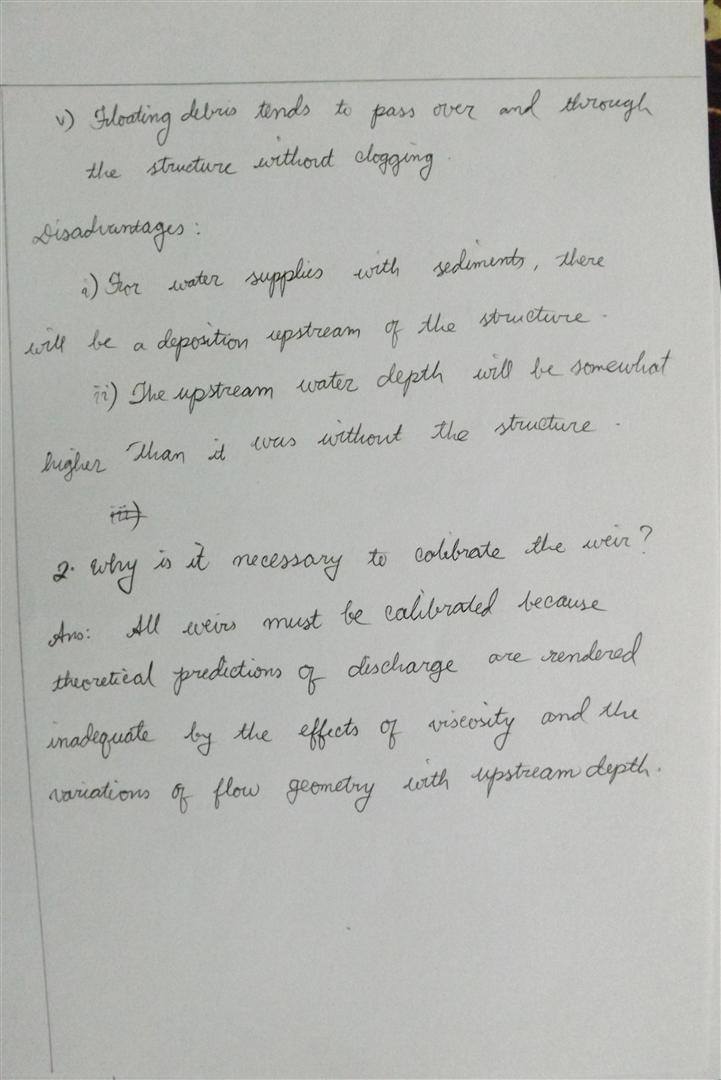 v) Floating debris tends to pass over and through
the structure without clogging.
Disadvantages:
i) For water supplies with sediments, there
will be a deposition upstream of the structure.
ii) The upstream water depth will be somewhat
higher than it was without the structure.
iii)
2. Why is it necessary to calibrate the weir?
Ans: All weirs must be calibrated because
theoretical predictions of discharge are rendered
inadequate by the effects of viscosity and the
variations of flow geometry with upstream depth.